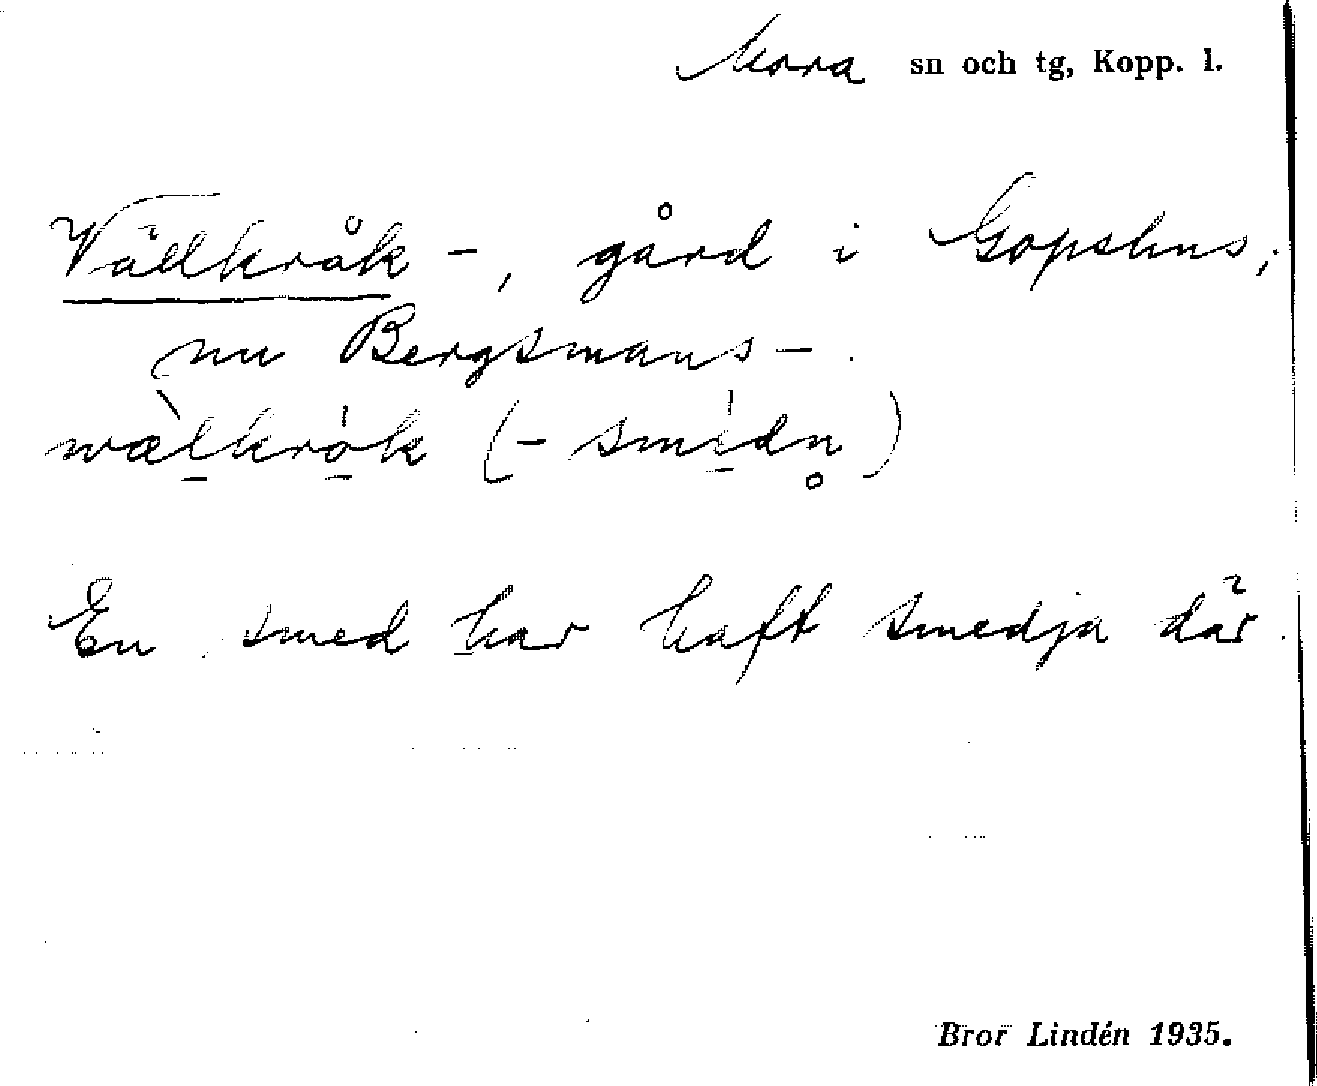 Mora sn och tg, Kopp. l.
Vällkråk -, gård i Gopshus;
nu Bergsmans - .
wæ̀l̠kró̠k (- smí̠dn̥)
En smed har haft smedja där.
Bror Lindén 1935.